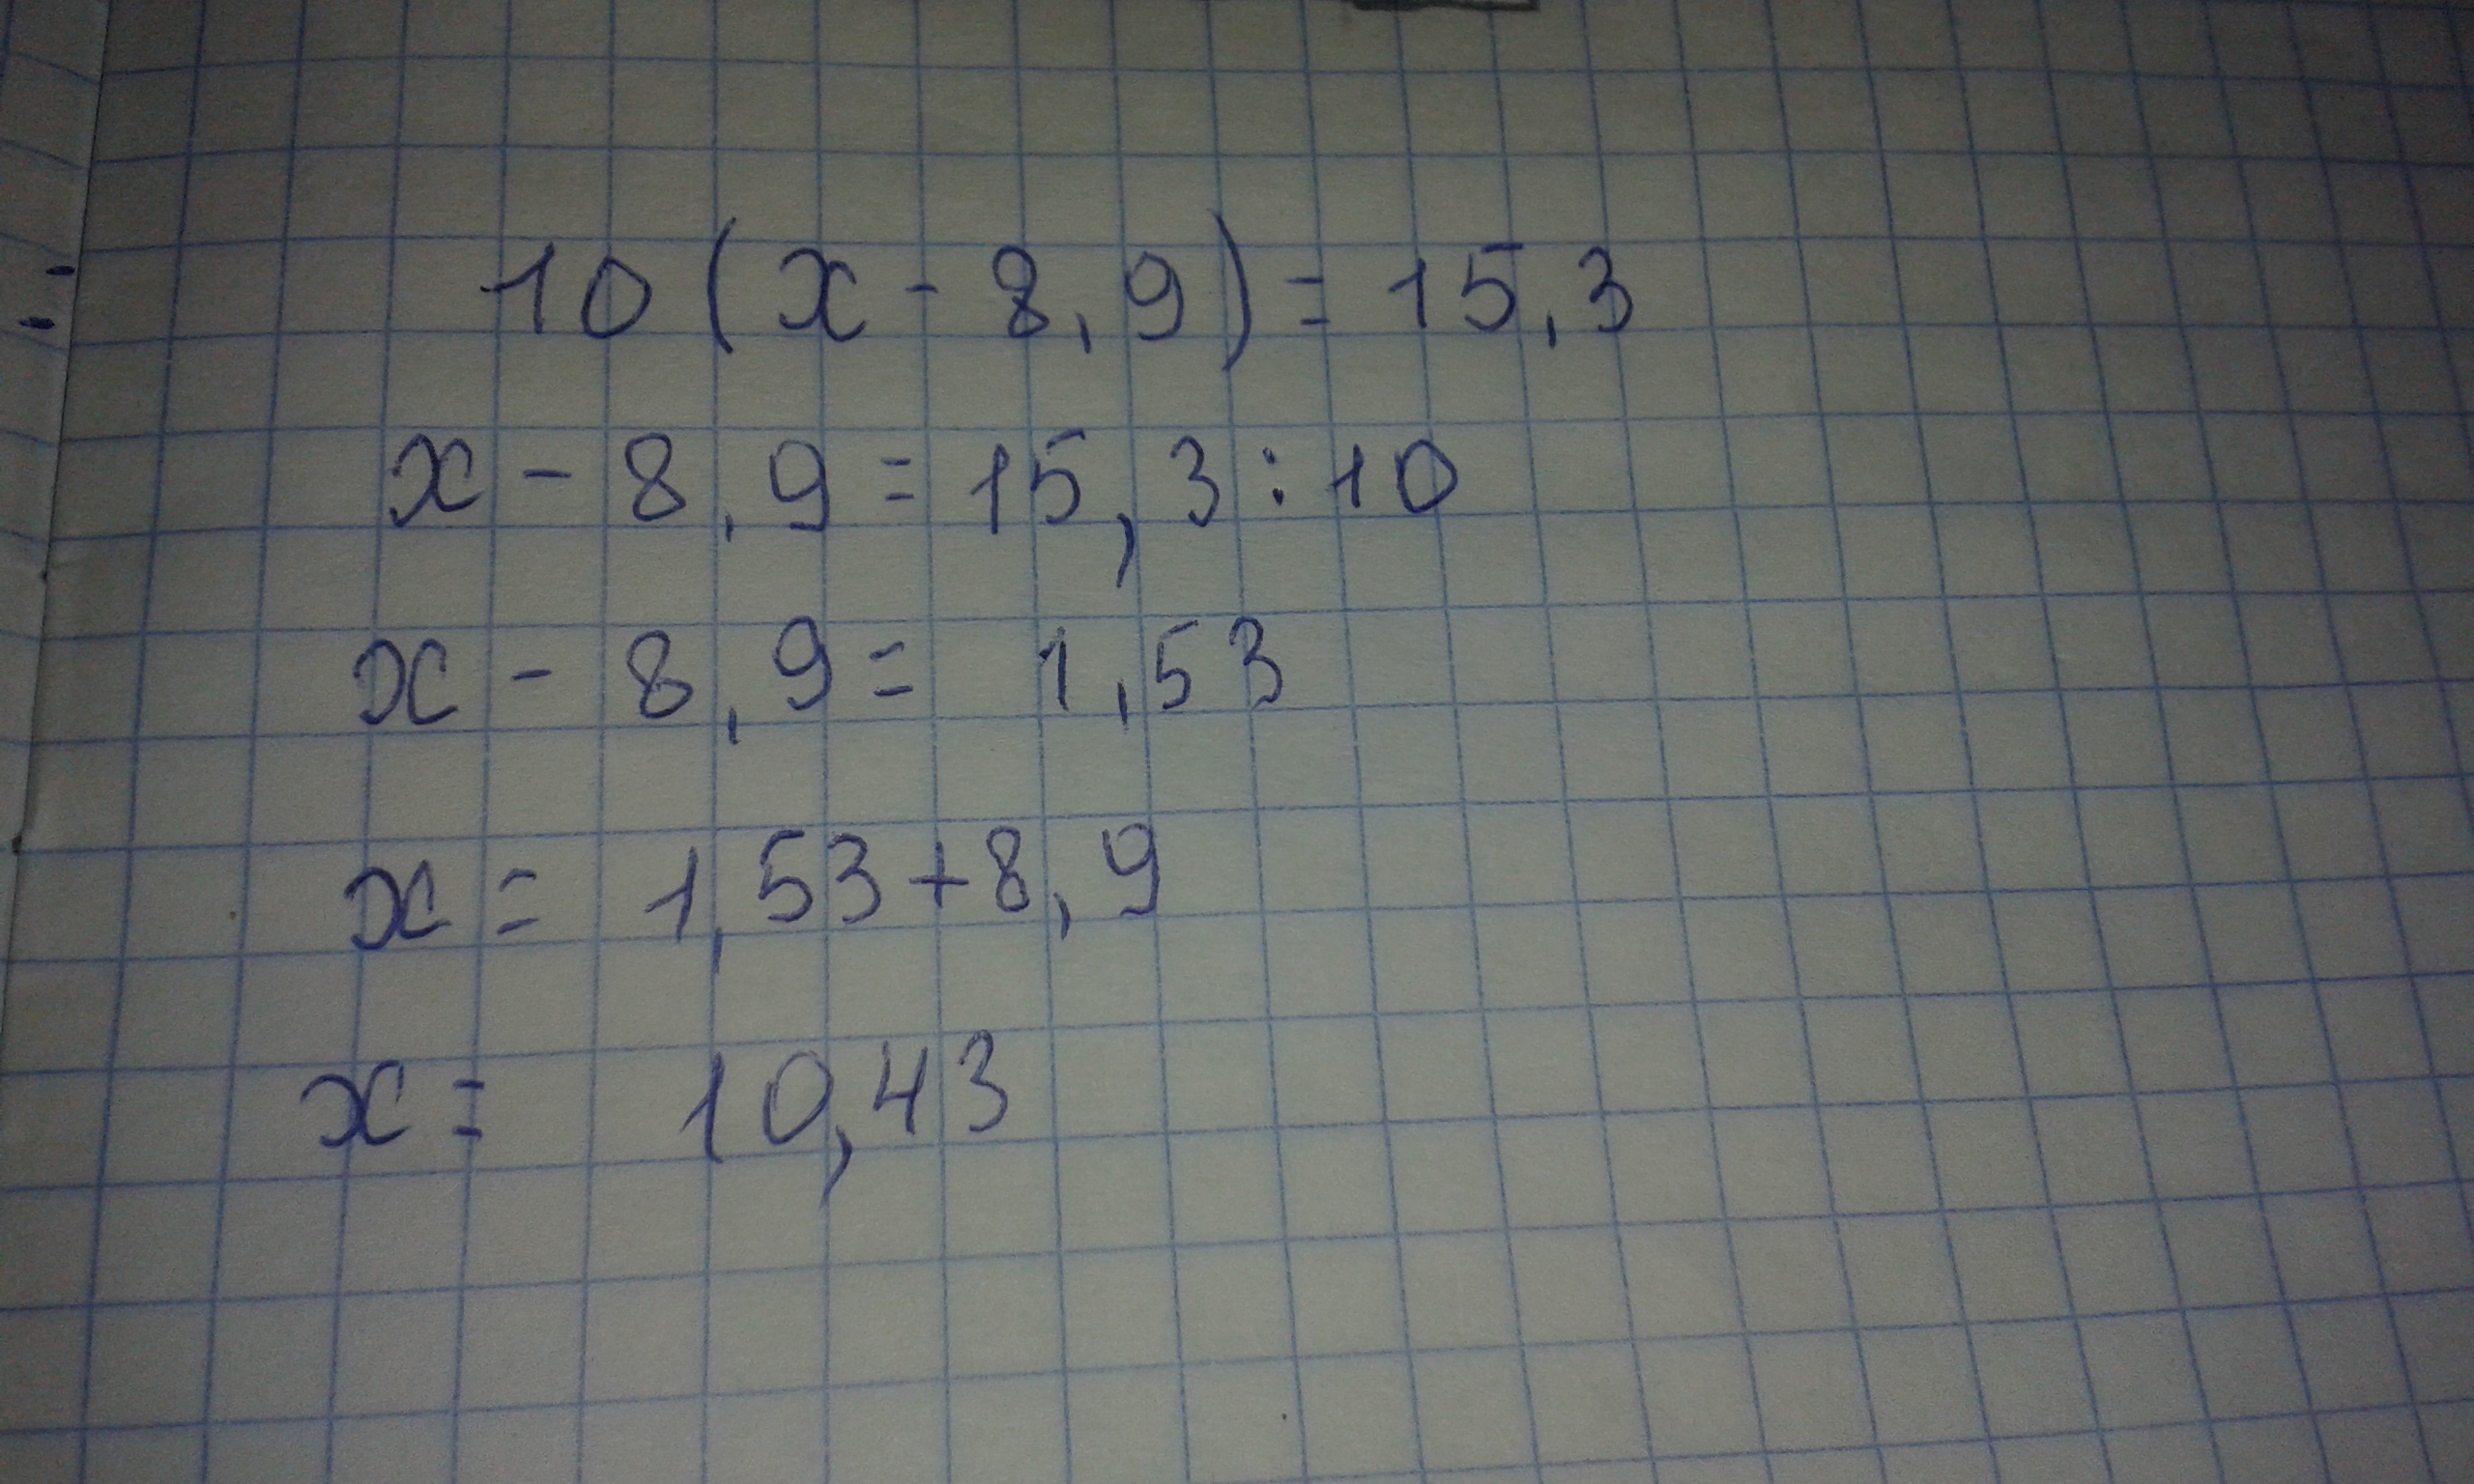 10(x-8,9)=15,3
x-8,9=15,3:10
x-8,9=1,53
x=1,53+8,9
x=10,43